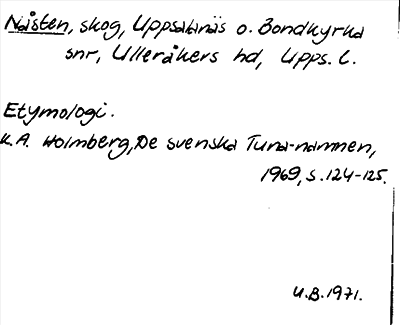 Nåsten, skog, Uppsalanäs o. Bondkyrka
snr, Ulleråkers hd, Upps. l.
Etymologi.
K.A. Holmberg, De svenska Tuna-namnen,
1969, s. 124-125.
U.B. 1971.